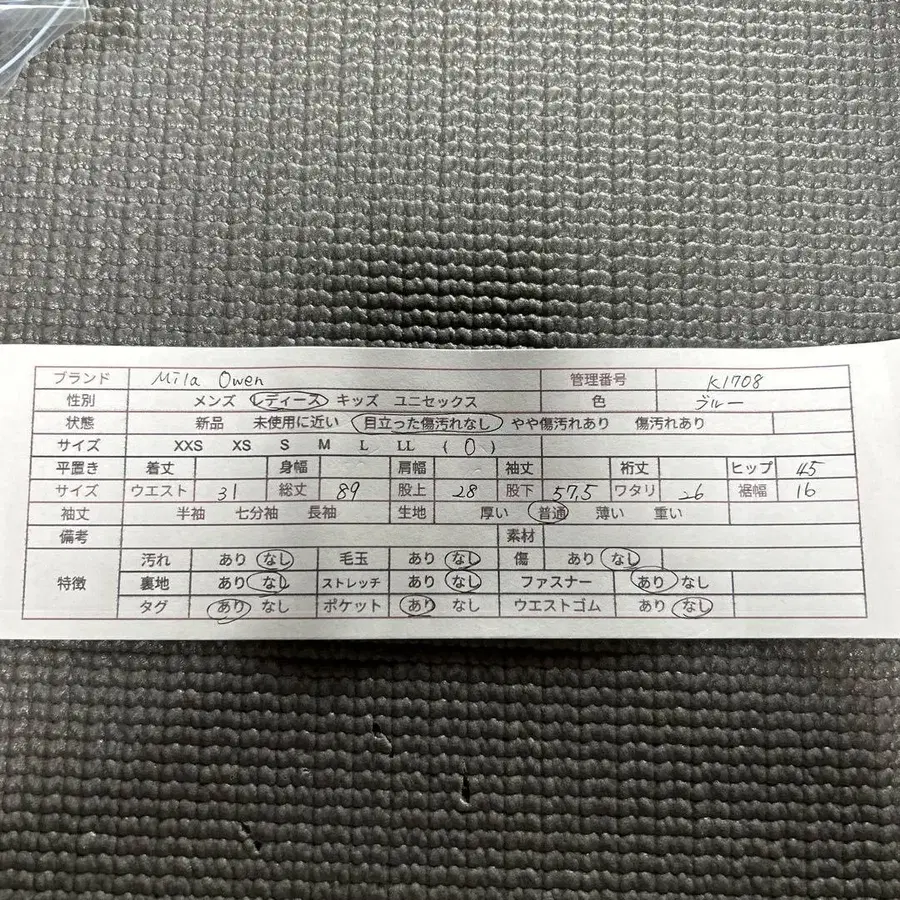 ブランド Mila Owen 管理番号 K1708
性別 メンズ レディース キッズ ユニセックス 色 ブルー
状態 新品 未使用に近い 目立った傷汚れなし やや傷汚れあり 傷汚れあり
サイズ XXS XS S M L LL ( 0 )
平置き 着丈 身幅 肩幅 袖丈 裄丈 ヒップ 45
サイズ ウエスト 31 総丈 89 股上 28 股下 57.5 ワタリ 26 裾幅 16
袖丈 半袖 七分袖 長袖 生地 厚い 普通 薄い 重い
備考 素材
特徴 汚れ あり なし 毛玉 あり なし 傷 あり なし
裏地 あり なし ストレッチ あり なし ファスナー あり なし
タグ あり なし ポケット あり なし ウエストゴム あり なし